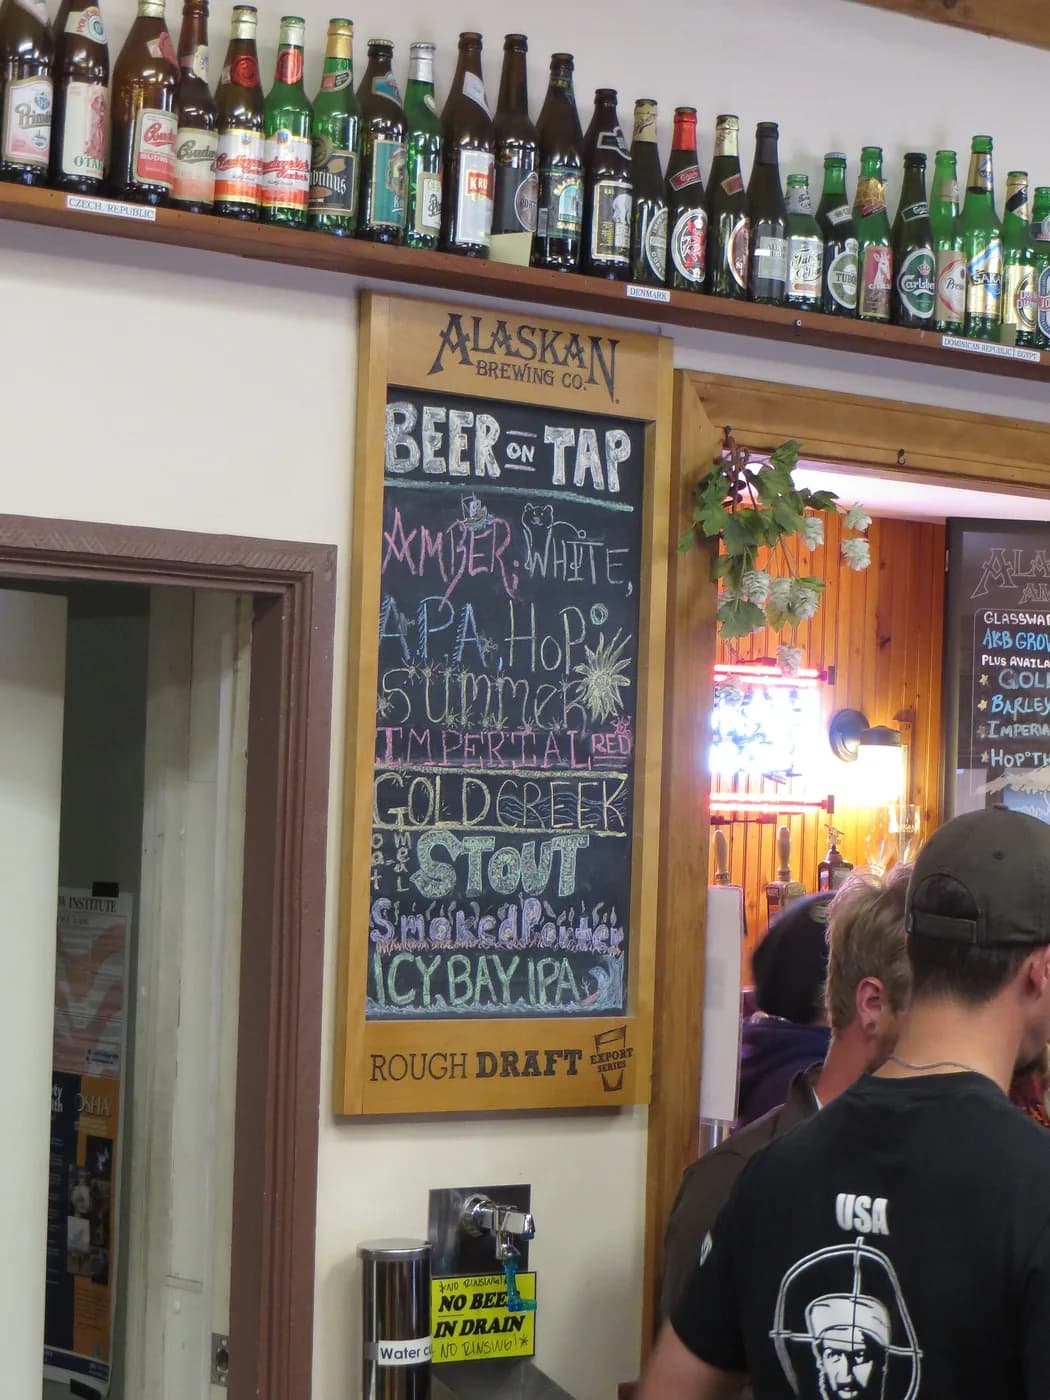 CZECH. REPUBLIC
DENMARK
DOMINICAN REPUBLIC
EGYPT
TUBORG
Carlsberg
ALASKAN
BREWING CO.
BEER ON TAP
AMBER, WHITE,
APA, HOP,
SUMMER
IMPERIAL RED
GOLD CREEK
OATMEAL STOUT
Smoked Porter
ICY BAY IPA
ROUGH DRAFT
EXPORT
SERIES
GLASSWAR
AKB GROW
PLUS AVAILA
GOLD
BARLEY
IMPERIA
HOP°TH
INSTITUTE
OSHA
*NO RINSING!*
NO BEER
IN DRAIN
*NO RINSING!*
Water cu
USA